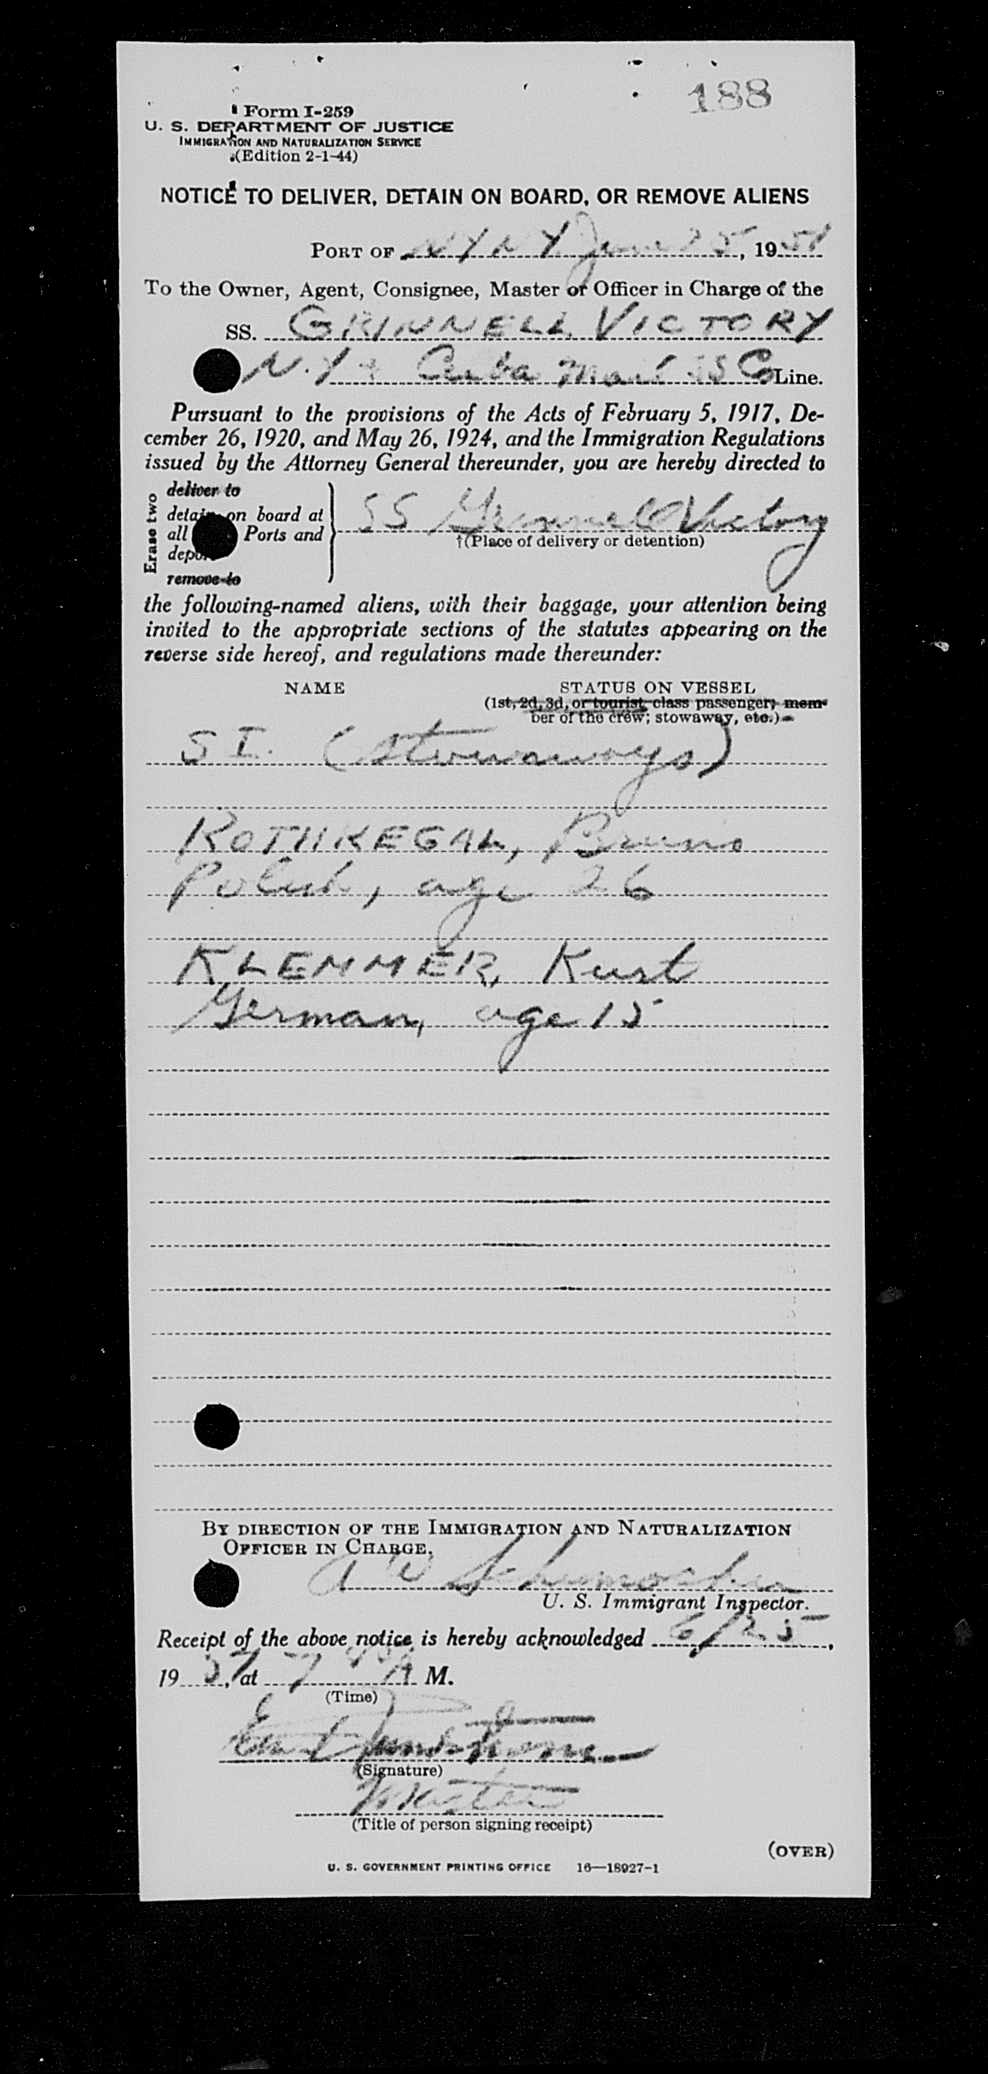 188
Form I-259
U. S. DEPARTMENT OF JUSTICE
IMMIGRATION AND NATURALIZATION SERVICE
(Edition 2-1-44)
NOTICE TO DELIVER, DETAIN ON BOARD, OR REMOVE ALIENS
PORT OF NY NY June 25, 1951
To the Owner, Agent, Consignee, Master or Officer in Charge of the
SS. GRINNELL VICTORY
N.Y & Cuba Mail SS Co Line.
Pursuant to the provisions of the Acts of February 5, 1917, De-
cember 26, 1920, and May 26, 1924, and the Immigration Regulations
issued by the Attorney General thereunder, you are hereby directed to
Erase two
deliver to
detain on board at
all Ports and
remove to
SS Grinnell Victory
†(Place of delivery or detention)
the following-named aliens, with their baggage, your attention being
invited to the appropriate sections of the statutes appearing on the
reverse side hereof, and regulations made thereunder:
NAME STATUS ON VESSEL
(1st, 2d, 3d, or tourist, class passenger; mem-
ber of the crew; stowaway, etc.)
SI. (Stowaways)
ROTHKEGAL, Bruno
Polish, age 26
KLEMMER, Kurt
German, age 15
BY DIRECTION OF THE IMMIGRATION AND NATURALIZATION
OFFICER IN CHARGE.
U. S. Immigrant Inspector.
Receipt of the above notice is hereby acknowledged 6/25,
1951, at 7 A M.
(Time)
(Signature)
Master
(Title of person signing receipt)
(OVER)
U. S. GOVERNMENT PRINTING OFFICE 16—18927-1